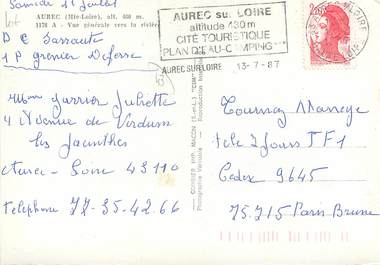 Samedi 11 juillet
AUREC (Hte-Loire), alt. 460 m.
1178 A - Vue générale vers la rivière
D C Sarraute
1P grenier Deforse
Mme Juliette
4 Avenue de Verdun
les Jacinthes
Aurec-Loire 43110
telephone 77-35.42.66
COMBIER IMP. MACON (S.-et-L.) "CIM"
AUREC sur LOIRE
altitude 430m
CITÉ TOURISTIQUE
PLAN D'EAU-CAMPING***
AUREC SUR LOIRE 13-7-87
Tournez Manege
tele 2 Jours TF1
Cedex 9645
75.715 Paris Brune